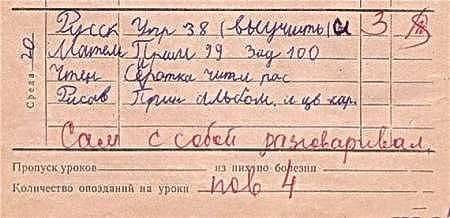 Русск Упр 38 (выучить) 3
Матем Прим 99 Зад 100
Среда 20
Чтен Серотка чит рас
Рисов Прин альбом. и цв кар.
Сам с собой разговаривал
Пропуск уроков из них по болезни
Количество опозданий на уроки пов 4